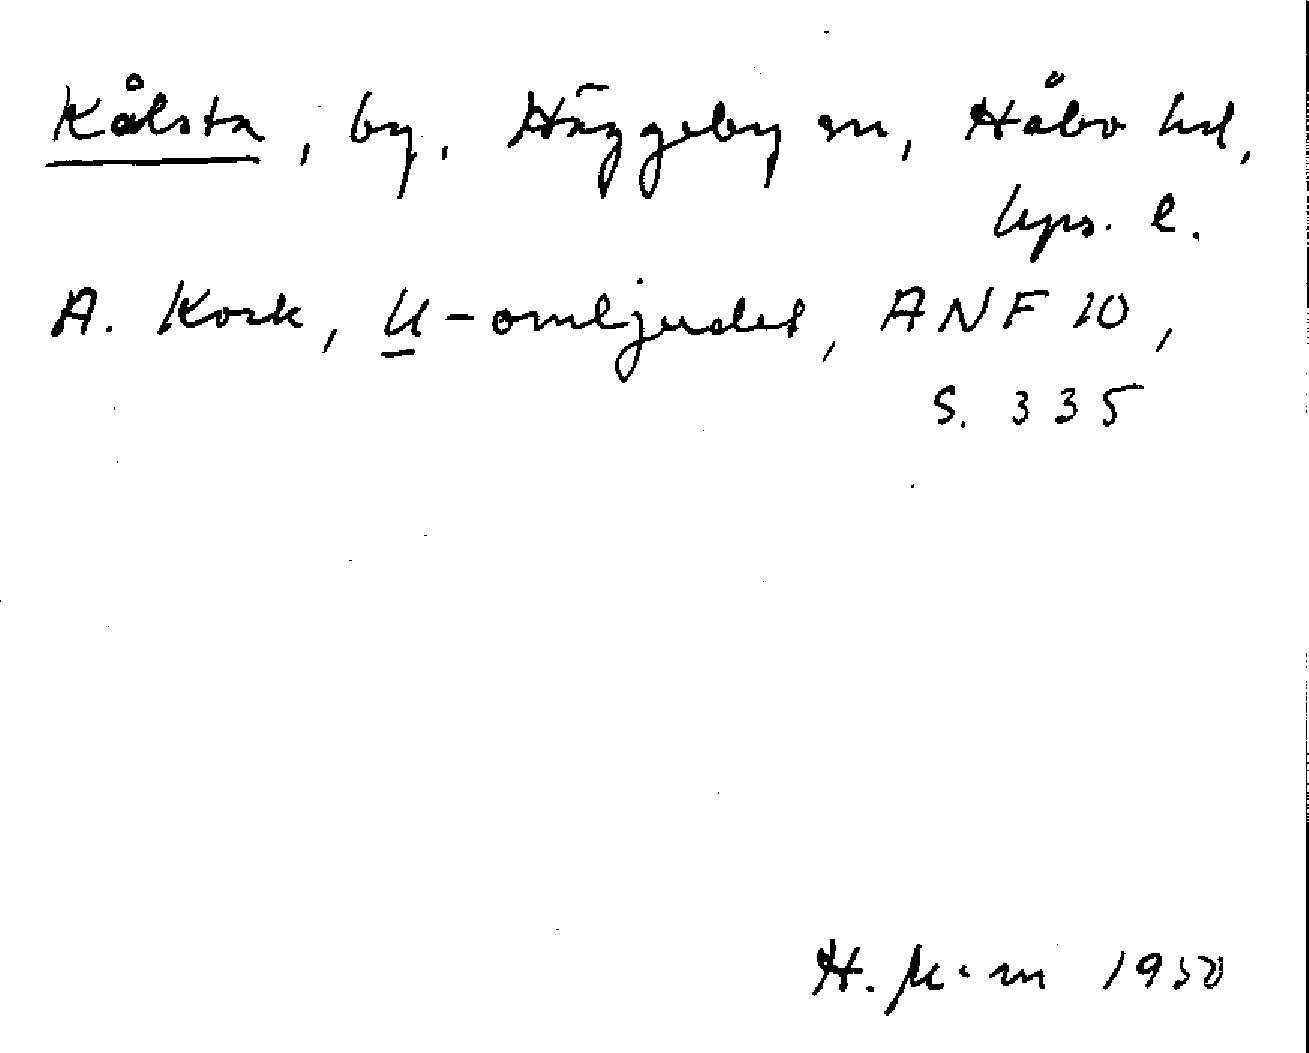 Kålsta, by, Häggeby sn, Håbo hd,
Ups. l.
A. Kock, U-omljudet, ANF 10,
S. 335
H. 1950